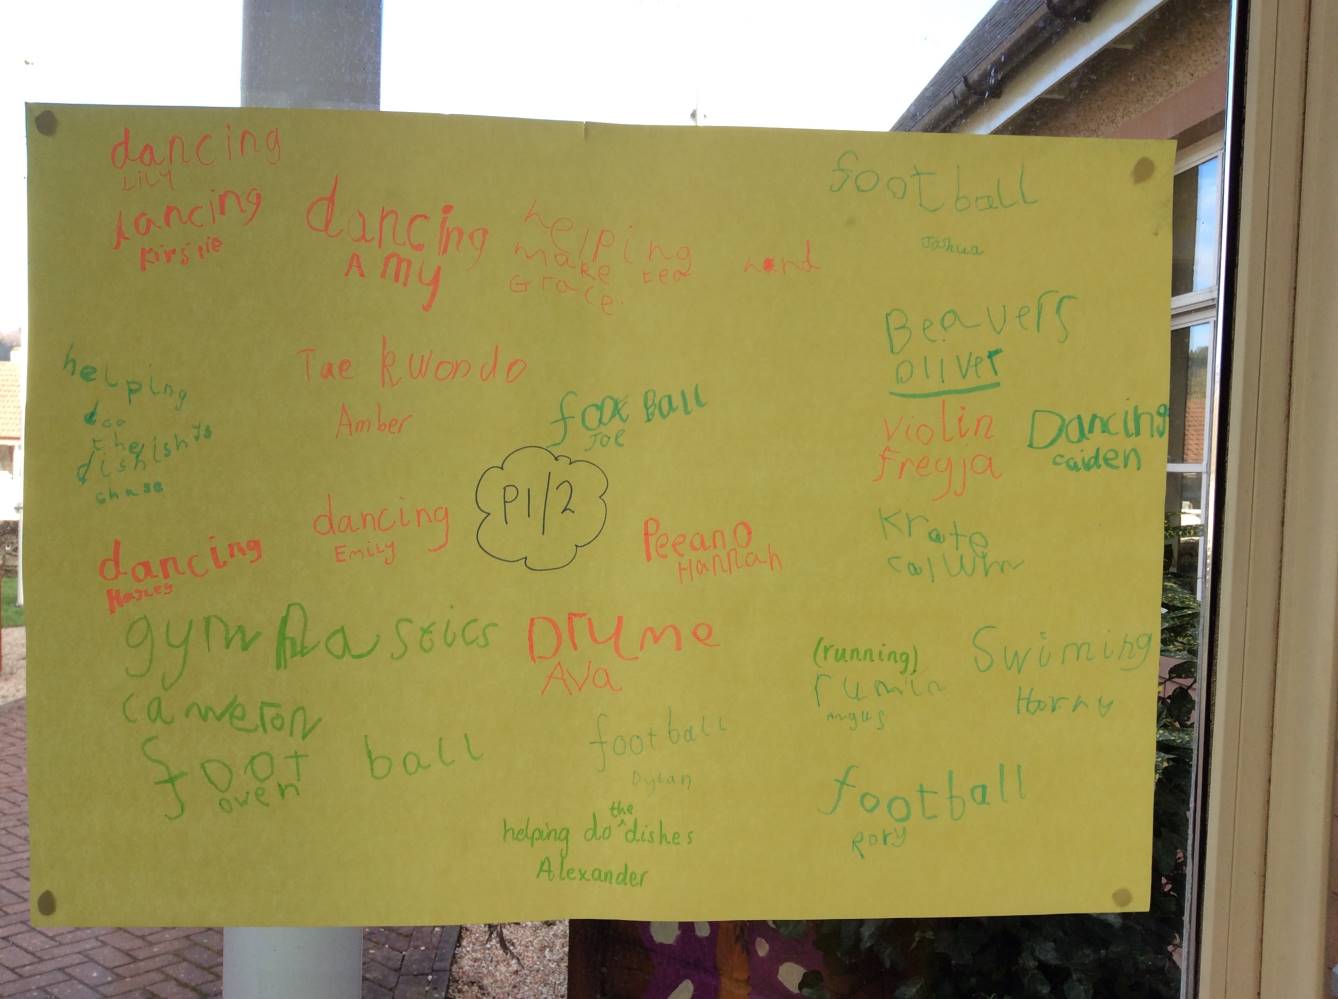 dancing
Lily
dancing
Kirstie
dancing
Amy
helping
make tea
Grace
football
Joshua
Beavers
Oliver
helping
doo
the
dishis
chase
Tae kwondo
Amber
football
Joe
violin
freyja
Dancing
caiden
P1/2
dancing
Emily
dancing
Peeano
Hannah
Krate
callum
gymnastics
cameron
Drume
Ava
(running)
rumin
Swiming
foot ball
owen
football
Dylan
football
Rory
helping do the dishes
Alexander